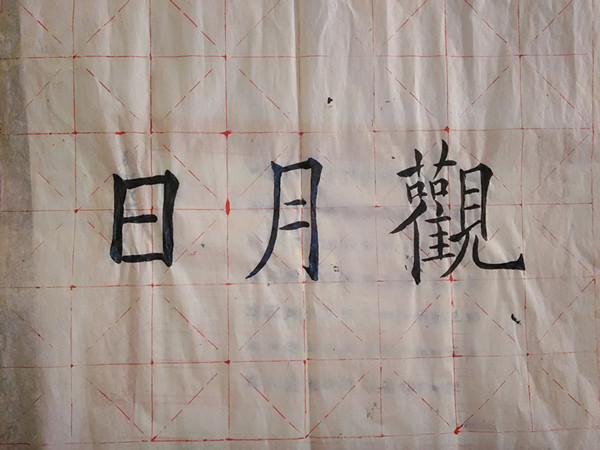 日月觀